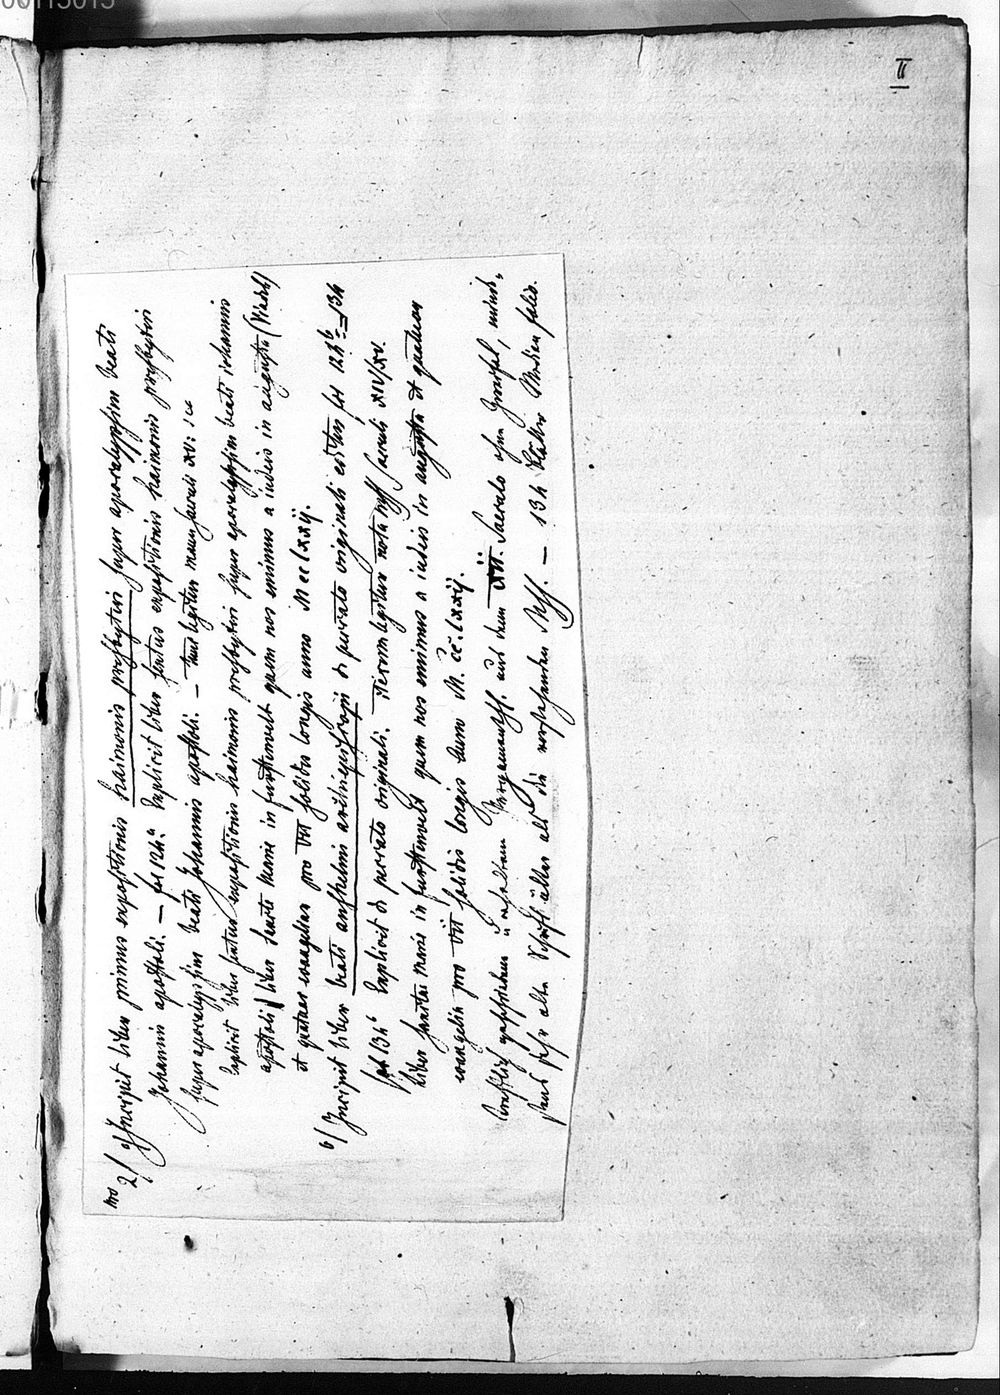 00113013
II
No 2/ a/ Incipit liber primus expositionis haimonis presbyteri super apocalypsim beati
Johannis apostoli. — fol 124a Explicit liber septimus expositionis haimonis presbyteri
super apocalypsim beati Johannis apostoli. — tunc legitur manu saeculi XV:
Explicit liber septimus expositionis haimonis presbyteri super apocalypsim beati johannis
apostoli liber sancte marie in furstenvelt quem nos emimus a iudeis in augusta
et quatuor evangelia pro VII solidis longis anno M cc lxxij.
b/ Incipit liber beati anshelmi archiepiscopi de peccato originali fol 124b = 134
fol 134b Explicit de peccato originali. Iterum legitur nota saeculi XIV/XV.
liber sanctae marie in furstenvelt quem nos emimus a iudeis in augusta et quatuor
evangelia pro VII solidis longis anno M. cc. lxxij.
geschrieben u erhaltene Pergamenthf. aus dem XII. Saeculo ohne
sehr alte Schrift älter als die vorstehenden Mss. — 134 Blätter Median folio.